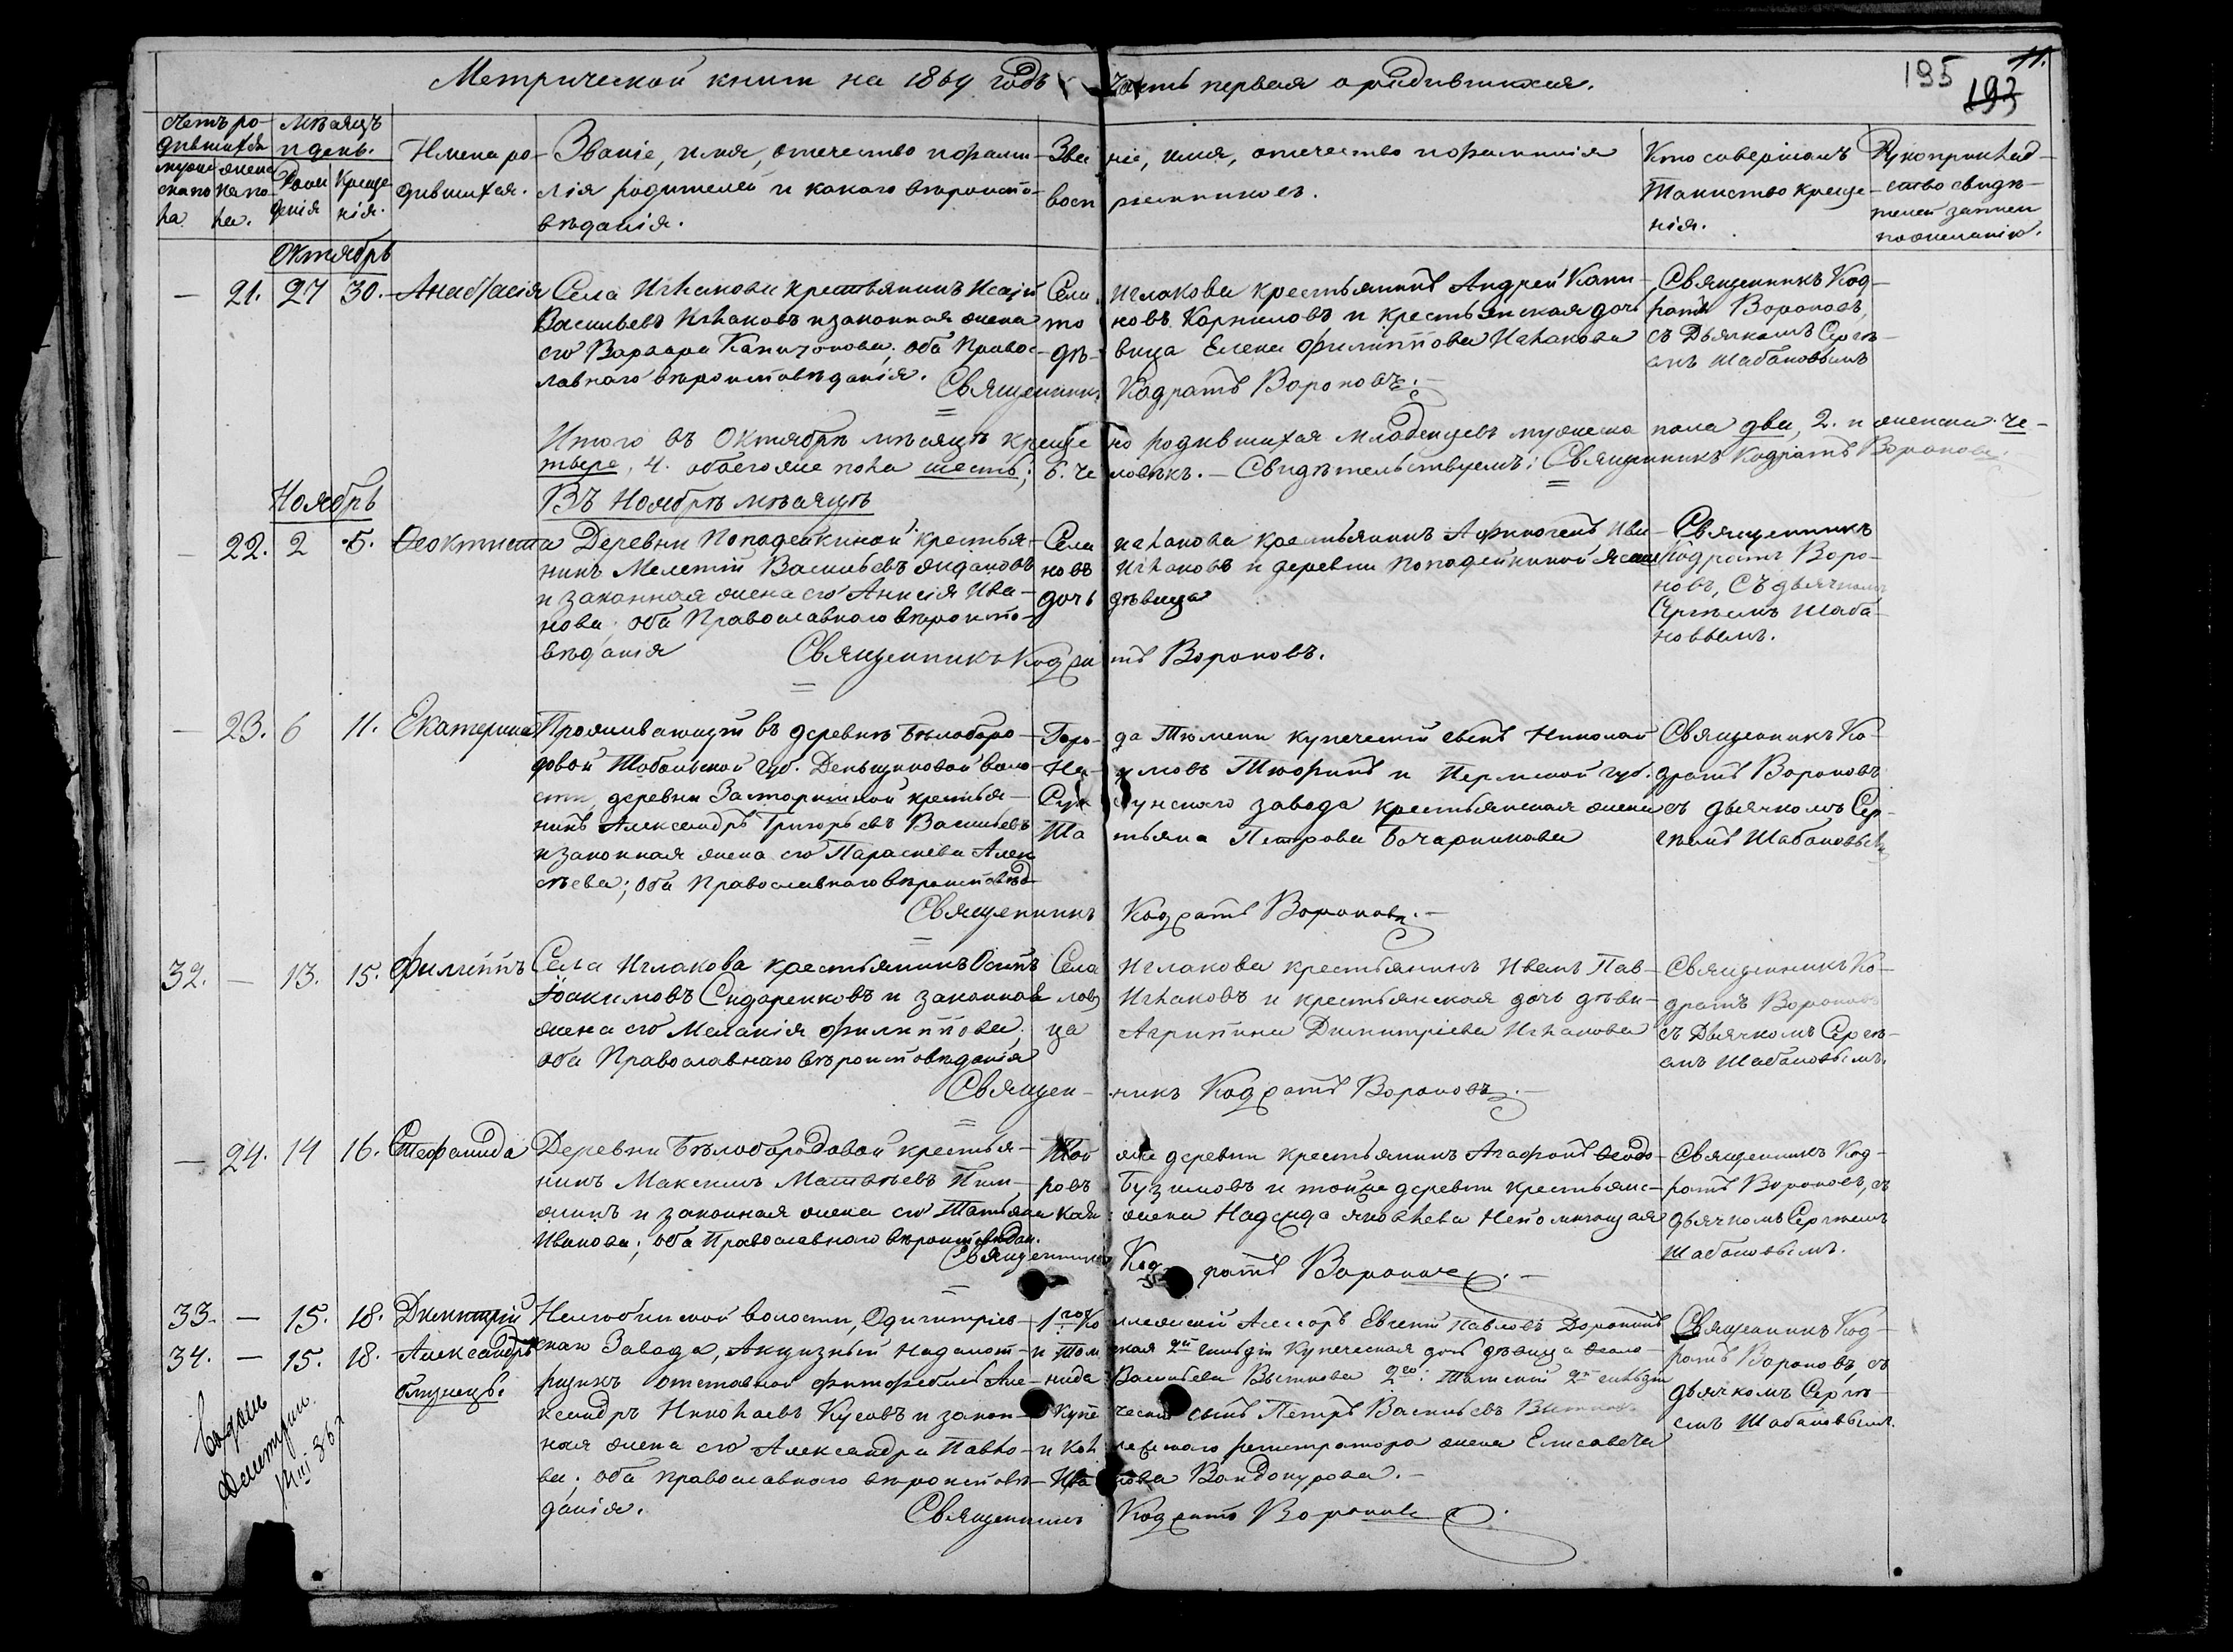 Метрической книги на 1864 годъ часть первая о родившихся.
11.
195
193
Счетъ ро-
дившихся
мѣсяцъ
и день.
мужеска по
ла
женска по
ла.
Рож
денія
Креще
нія.
Имена ро-
дившихся.
Званіе, имя, отечество и фами-
лія родителей и какого вѣроиспо-
вѣданія.
Званіе, имя, отечество и фамилія
воспріемниковъ.
Кто совершалъ
Таинство креще-
нія.
Рукоприклад-
ство свидѣ-
телей записи
по желанію.
Октябрь
— 21. 27 30. Анастасія
Села Иглакова крестьянинъ Исаій
Васильевъ Иглаковъ и законная жена
его Варвара Капитонова; оба Право-
лавнаго вѣроисповѣданія.
Села Иглакова крестьянинъ Андрей Капи-
то новъ Корниловъ и крестьянская дочь
дѣ- вица Елена Филиппова Иглакова
Священникъ Код-
ратъ Вороновъ,
съ Дьячкомъ Сергѣ-
емъ Шабановымъ
Священникъ Кодратъ Вороновъ.
Итого въ Октябрѣ мѣсяцѣ крещено родившихся младенцевъ мужеска пола два, 2. и женска че-
тыре, 4. обоего же пола шесть, 6. человѣкъ. — Свидѣтельствуемъ: Священникъ Кодратъ Вороновъ.
Ноябрь
Въ Ноябрѣ мѣсяцѣ
— 22. 2 5. Ѳеоктиста
Деревни Попадейкиной крестья-
нинъ Мелетій Васильевъ Жидаковъ
и законная жена его Анисія Ива-
нова; оба Православнаго вѣроиспо-
вѣданія
Села Иглакова крестьянинъ Афиногенъ Ива-
новъ Иглаковъ и деревни Попадейкиной
дочь дѣвица
Священникъ
Кодратъ Воро-
новъ, Съ дьячкомъ
Сергѣемъ Шаба-
новымъ.
Священникъ Кодратъ Вороновъ.
— 23. 6 11. Екатерина
Проживающій въ деревнѣ Бѣлоборо-
довой Тобольской губ. Деньщиковой воло-
сти, деревни крестья-
нинъ Александръ Григорьевъ Васильевъ
и законная жена его Параскева Алек
сѣева; оба Православнаго вѣроисповѣд
Города Тюмени купеческій сынъ Николай
Наумовъ Тюфинъ и Пермской губ.
Суксунскаго завода крестьянская жена
Татьяна Петрова Бочарникова
Священникъ Ко-
дратъ Вороновъ
съ дьячкомъ Сер-
гѣемъ Шабановымъ
Священникъ Кодратъ Вороновъ. —
32. — 13. 15. Филиппъ
Села Иглакова крестьянинъ Осипъ
Іоакимовъ Сидоренковъ и законная
жена его Меланія Филиппова,
оба Православнаго вѣроисповѣданія
Села Иглакова крестьянинъ Иванъ Пав-
ловъ Иглаковъ и крестьянская дочь дѣви-
ца Агрипина Димитріева Иглакова
Священникъ Ко-
дратъ Вороновъ
съ Дьячкомъ Сергѣ-
емъ Шабановымъ.
Священ- никъ Кодратъ Вороновъ. —
— 24. 14 16. Стефанида
Деревни Бѣлобородовой крестья-
нинъ Максимъ Матвѣевъ
и законная жена его Татьяна
Иванова; оба Православнаго вѣроисповѣдан.
Той же деревни крестьянинъ Агафонъ Ѳеодо-
ровъ Бузимовъ и тойже деревни крестьянс-
кая жена Надежда Яковлева Непомнющая
Священникъ Код-
ратъ Вороновъ, съ
дьячкомъ Сергѣемъ
Шабановымъ.
Священникъ Кодратъ Вороновъ. —
33. — 15. 18. Димитрій
34. — 15. 18. Александръ
близнецы.
Нелюбинской волости, Одигитріев-
скаго Завода, Акцизный Надсмот-
рщикъ отставной Але-
ксандръ Николаевъ Кусовъ и закон-
ная жена его Александра Павло-
ва; оба православнаго вѣроисповѣ-
данія.
1го Коллежскій Асессоръ Евгеній Павловъ Доронинъ
и Томская 2й гильдіи Купеческая дочь дѣвица
Васильева Вытнова 2го: Томскій 2й гильдіи
Купеческій сынъ Петръ Васильевъ
и Коллежскаго регистратора жена Елисавета
Иванова Вандокурова. —
Священникъ Код-
ратъ Вороновъ, съ
дьячкомъ Сергѣ-
емъ Шабановымъ.
Священникъ Кодратъ Вороновъ.